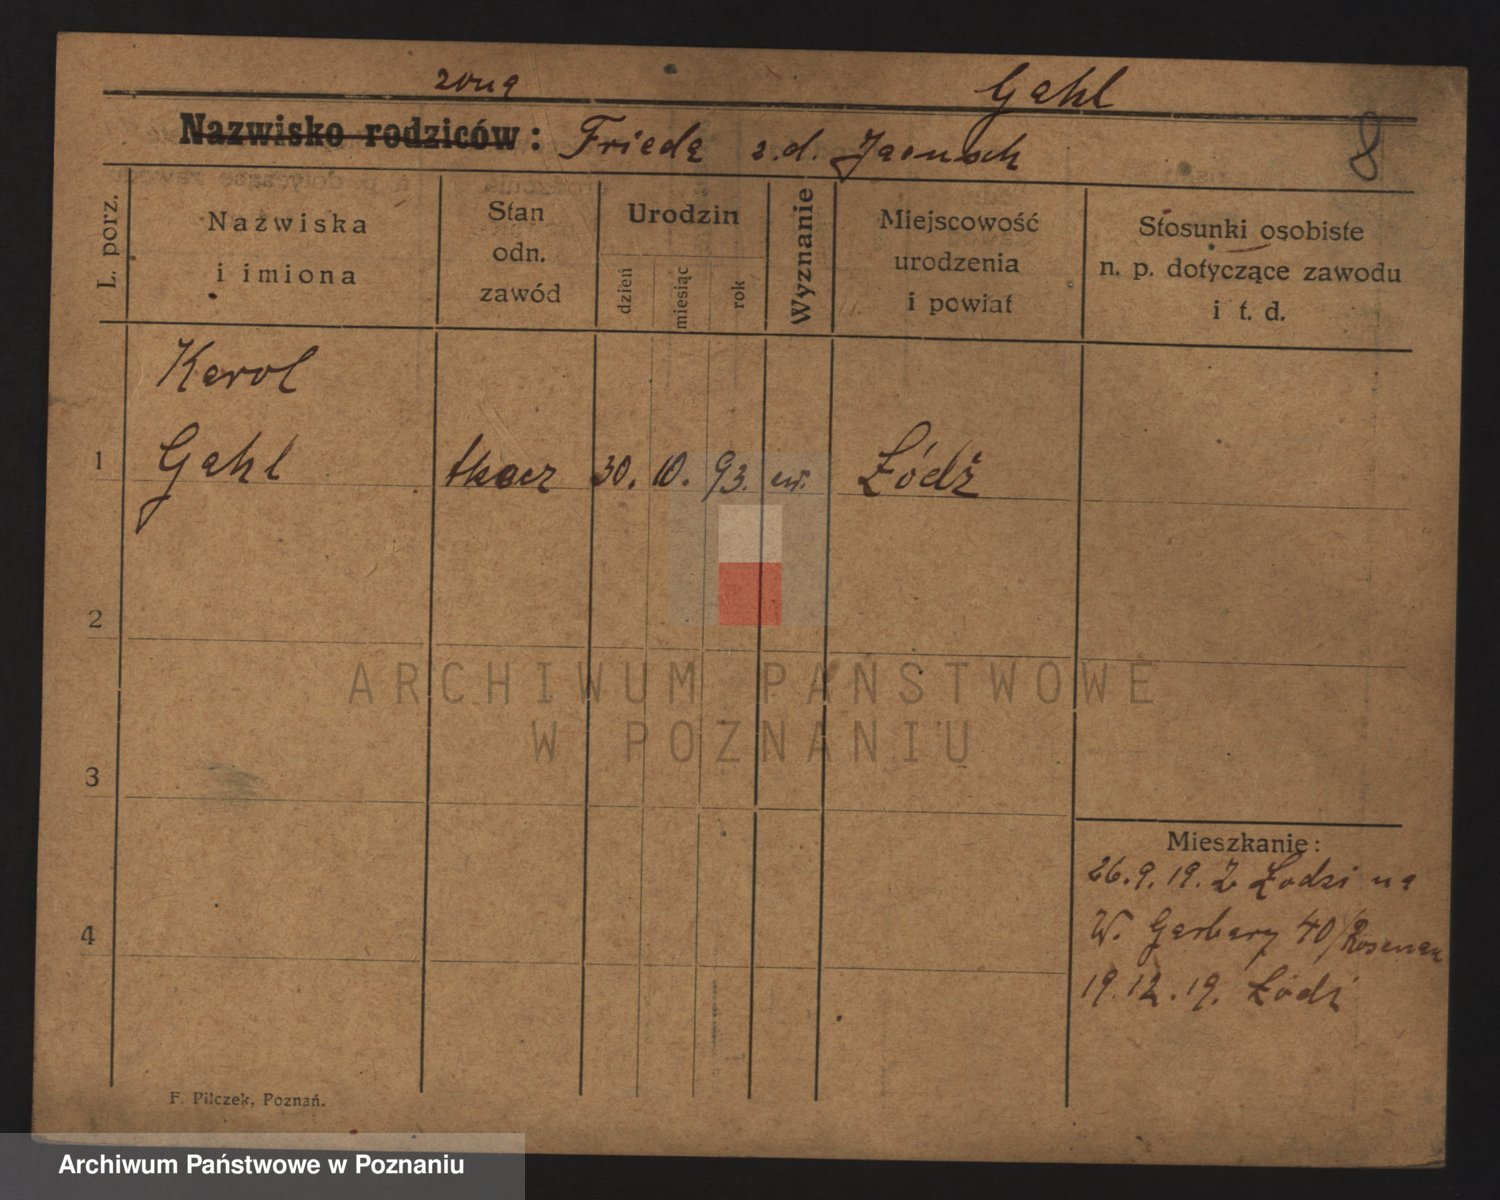 żona Gahl
Nazwisko rodziców: Frieda z.d. Jaensch
8
L. porz.
Nazwiska
i imiona
Stan
odn.
zawód
Urodzin
dzień
miesiąc
rok
Wyznanie
Miejscowość
urodzenia
i powiat
Stosunki osobiste
n. p. dotyczące zawodu
i t. d.
Karol
1 Gahl tkacz 30. 10. 93. ew. Łódź
2
3
4
ARCHIWUM PAŃSTWOWE
W POZNANIU
Mieszkanie:
26.9.19. Z Łodzi na
W. Garbary 40/Rosenau
19.12.19. Łódź
F. Pilczek, Poznań.
Archiwum Państwowe w Poznaniu